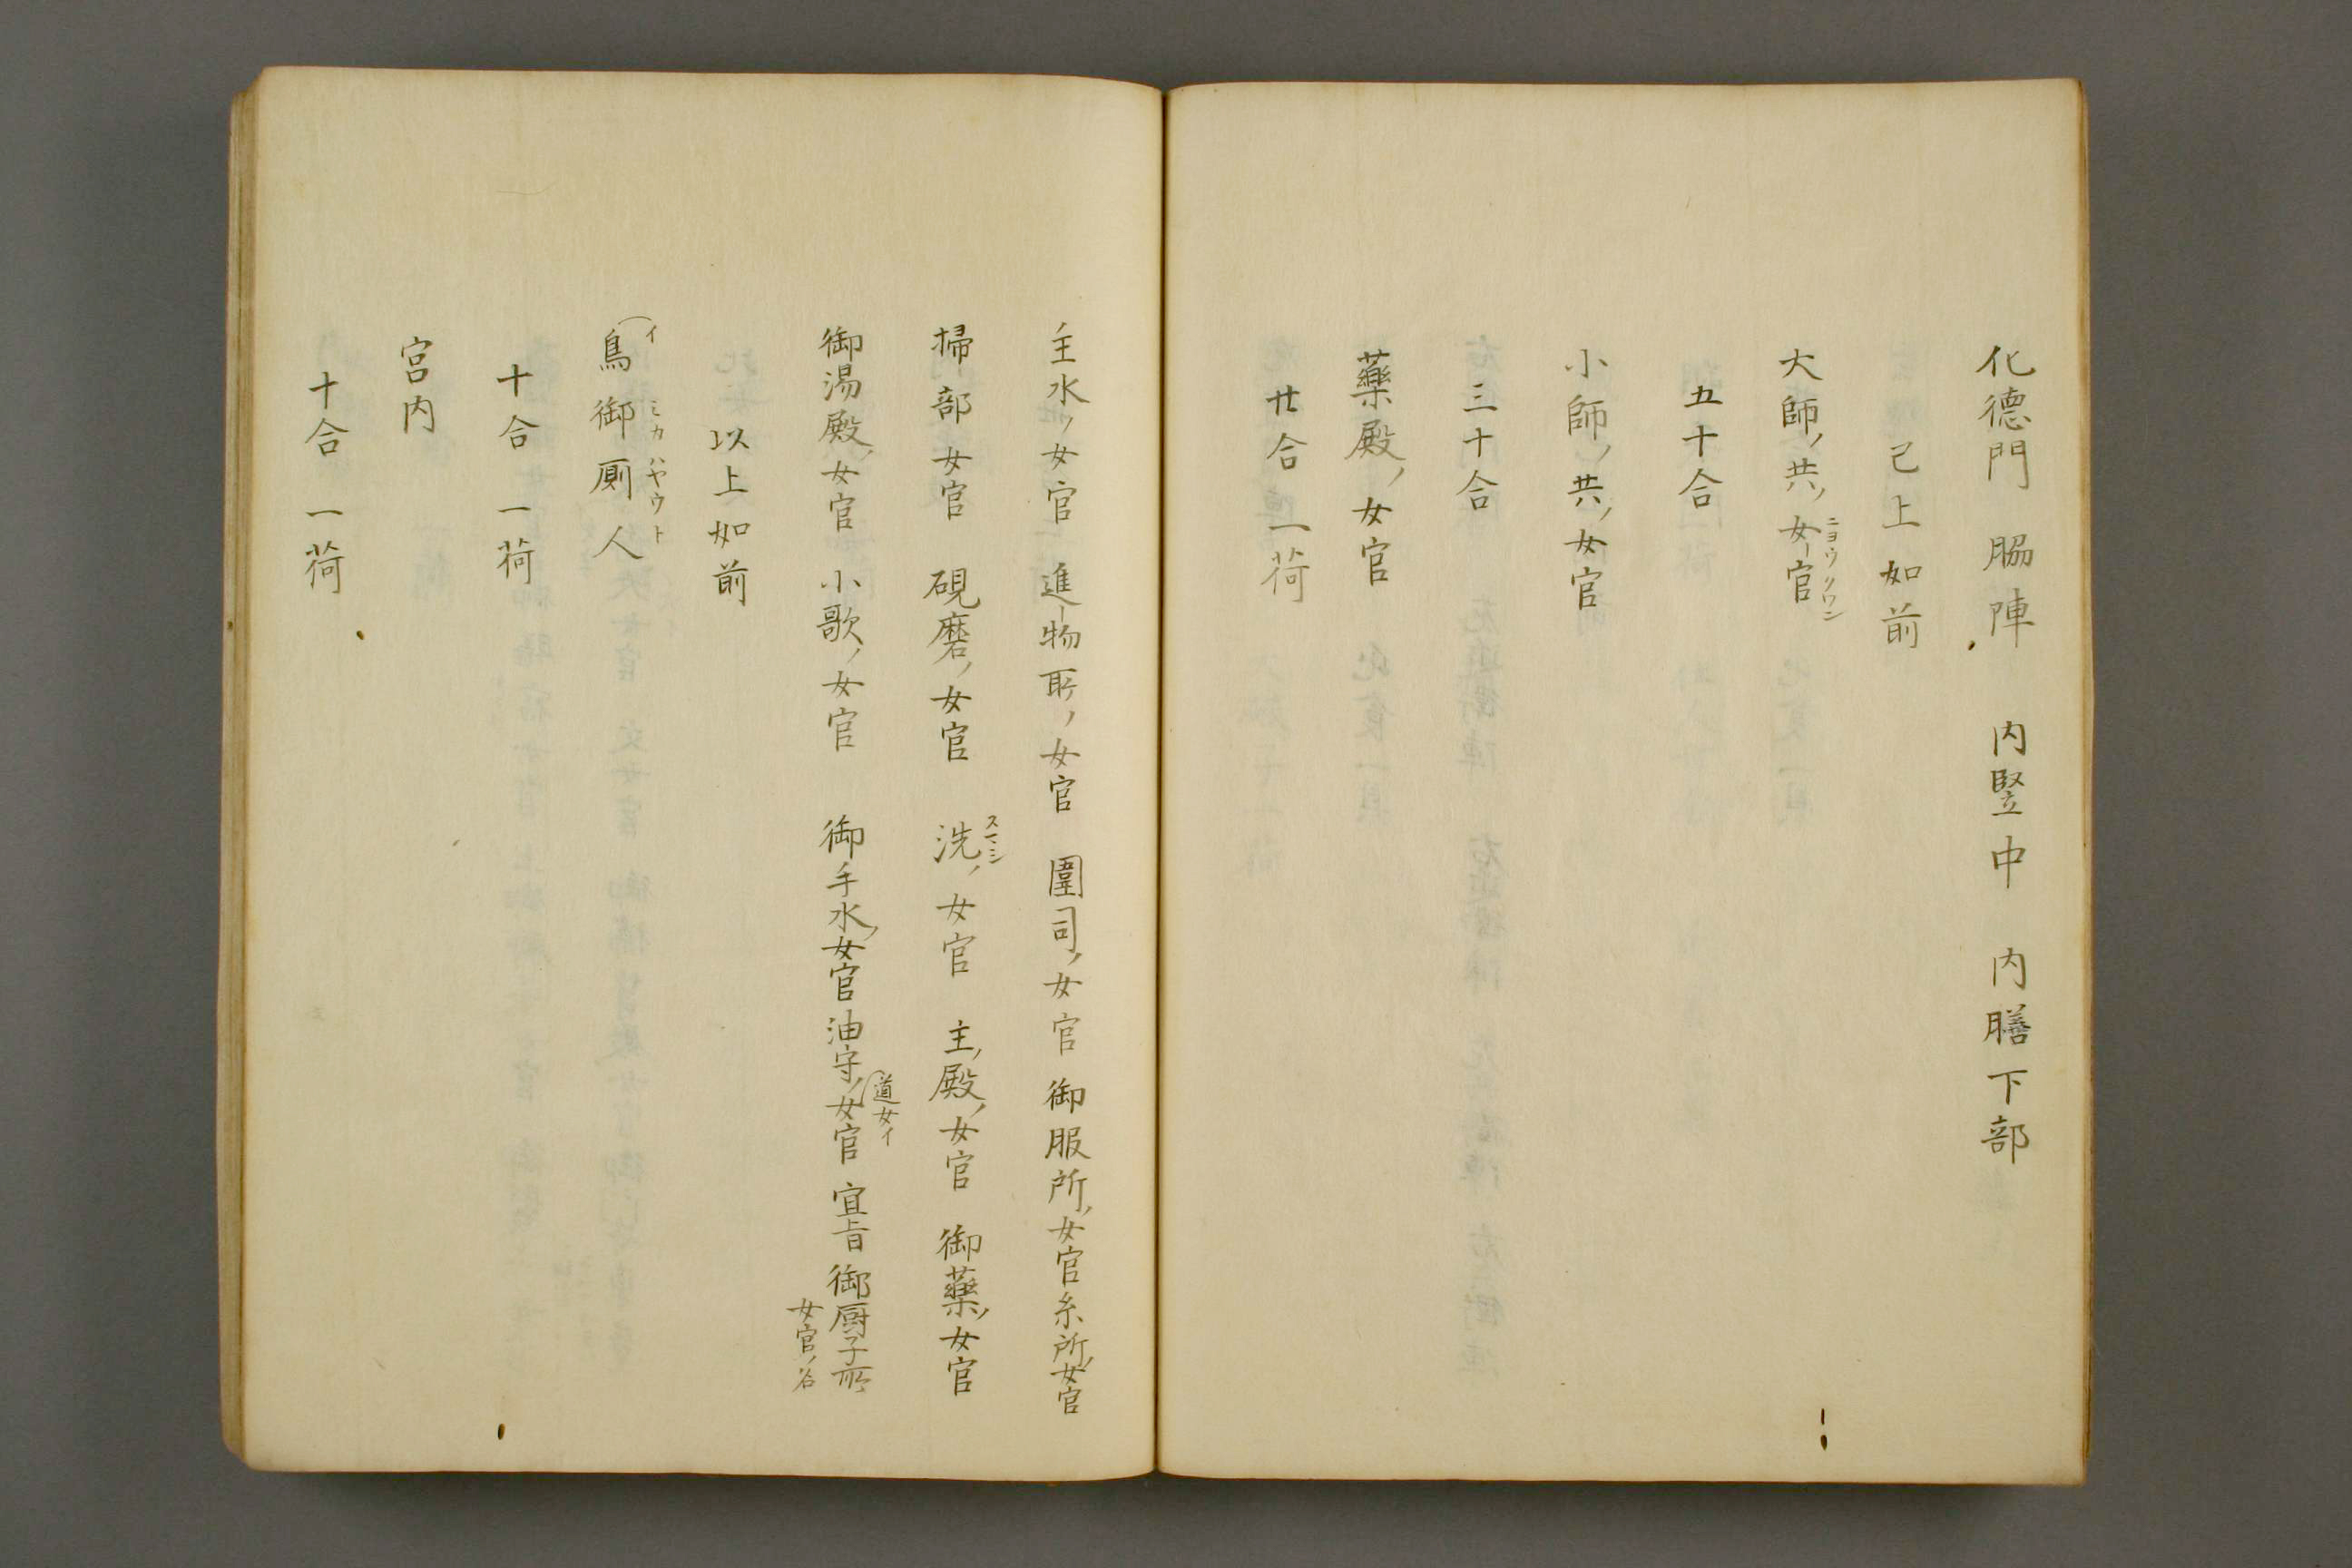 化德門　脇陣　内竪中　内膳下部
己上如前
大師ノ共ノ女官ニヨウクワン
五十合
小師ノ共ノ女官
三十合
藥殿ノ女官
廿合　一荷
主水ノ女官　進物所ノ女官　圍司ノ女官　御服所ノ女官　糸所ノ女官
掃部女官　硯磨ノ女官　洗スマシノ女官　主ノ殿ノ女官　御藥ノ女官
御湯殿ノ女官　小歌ノ女官　御手水ノ女官　油守ノ女官　道女イ　宣旨　御厨子所ノ
女官ノ名
以上如前
鳥イ御厠人ミカハヤウト
十合　一荷
宮内
十合　一荷